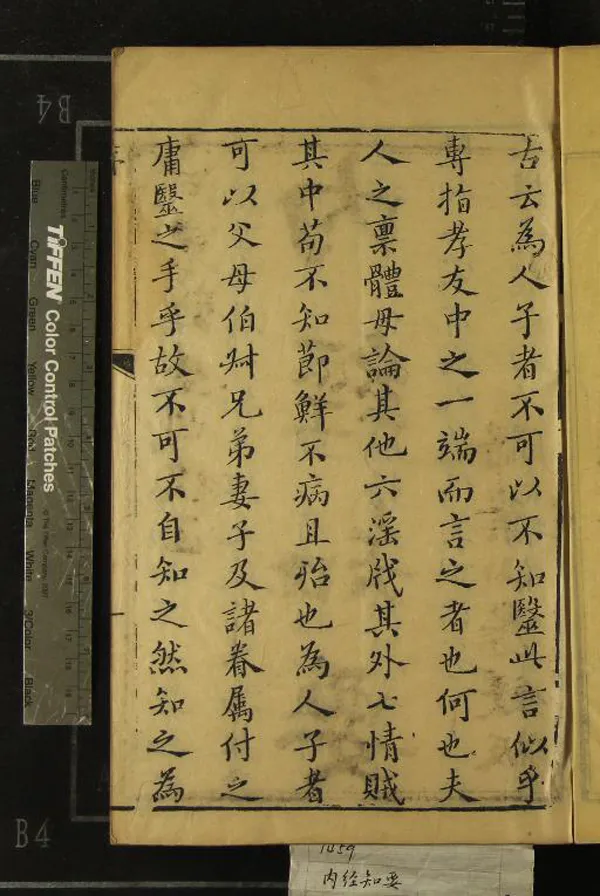 古云為人子者不可以不知醫此言似乎
專指孝友中之一端而言之者也何也夫
人之禀體毋論其他六淫戕其外七情賊
其中茍不知節鮮不病且殆也為人子者
可以父母伯叔兄弟妻子及諸眷属付之
庸醫之手乎故不可不自知之然知之為
B4
TIFFEN Color Control Patches
© The Tiffen Company, 2007
Centimetres
Inches
Blue
Cyan
Green
Yellow
Red
Magenta
White
3/Color
Black
B4
1459
内经知要